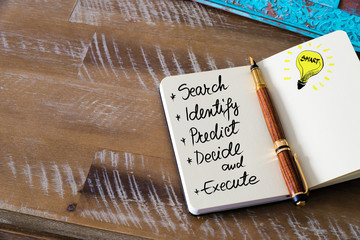 + Search
+ Identify
+ Predict
+ Decide
and
+ Execute
SMART